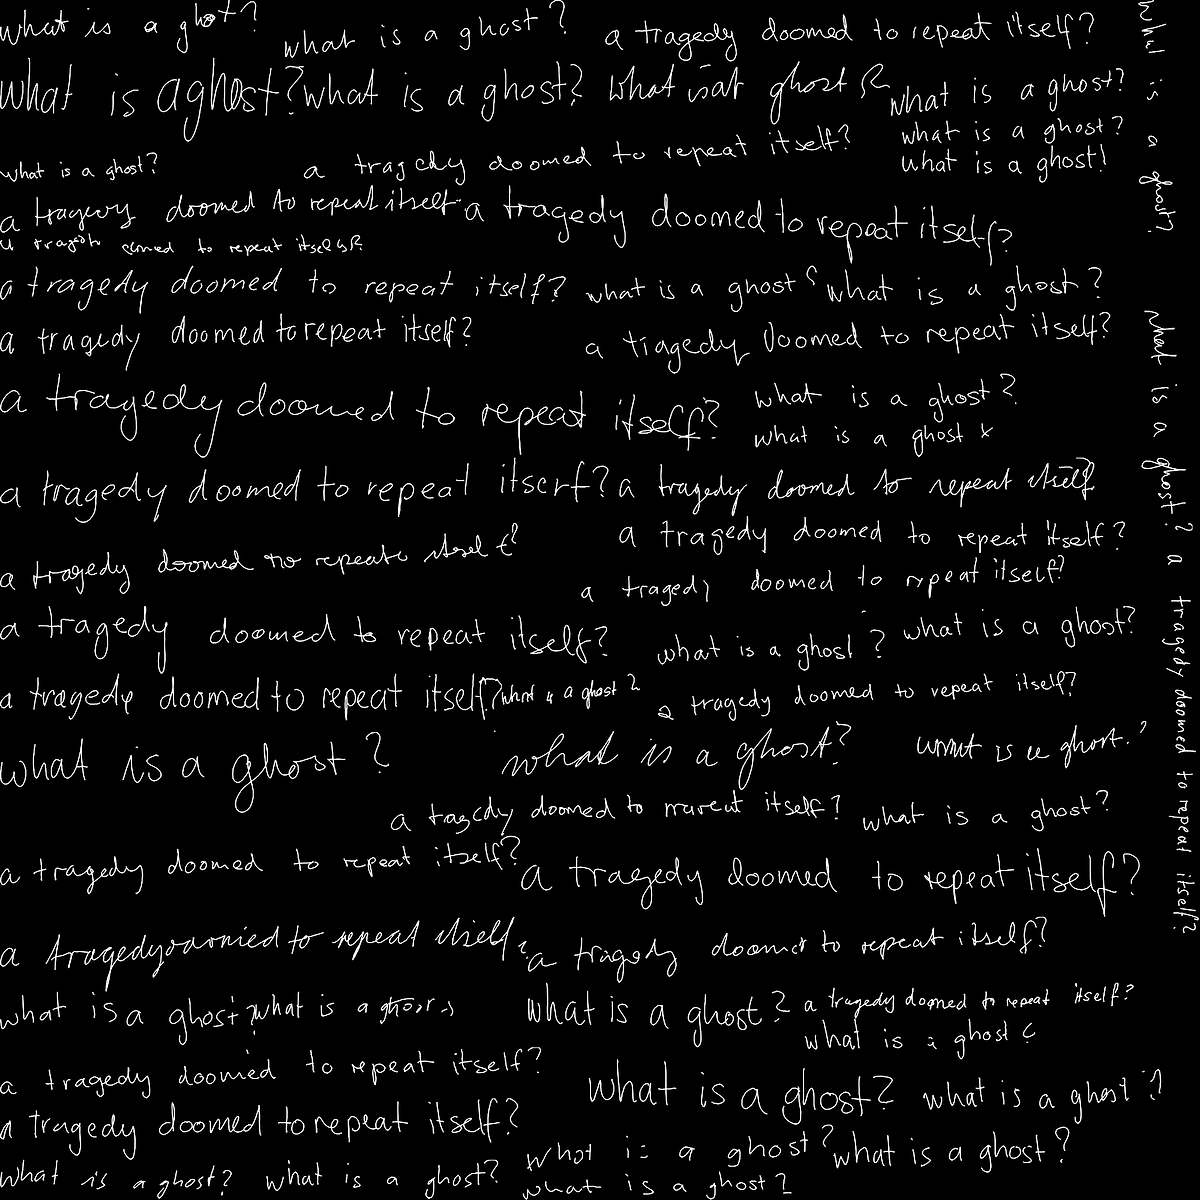 what is a ghost?
what is a ghost?
a tragedy doomed to repeat itself?
what is a ghost?
what is a ghost?
what is at ghost?
what is a ghost?
what is a ghost?
what is a ghost!
what is a ghost?
a tragedy doomed to repeat itself?
a tragedy doomed to repeat itself
a tragedy doomed to repeat itself?
to repeat itself?
a tragedy doomed to repeat itself?
what is a ghost?
what is a ghost?
a tragedy doomed to repeat itself?
a tragedy doomed to repeat itself?
a tragedy doomed to repeat itself?
what is a ghost?
what is a ghost
a tragedy doomed to repeat itself?
a tragedy doomed to repeat itself
a tragedy doomed to repeat itself?
a tragedy doomed
a tragedy doomed to repeat itself?
a tragedy doomed to repeat itself?
what is a ghost?
what is a ghost?
a tragedy doomed to repeat itself?
what is a ghost?
a tragedy doomed to repeat itself?
what is a ghost?
what is a ghost?
is a ghost.?
a tragedy doomed to itself?
what is a ghost?
a tragedy doomed to repeat itself?
a tragedy doomed to repeat itself?
a tragedy to repeat itself?
a tragedy doomed to repeat itself?
what is a ghost?
what is a
what is a ghost?
a tragedy doomed to repeat itself?
what is a ghost?
a tragedy doomed to repeat itself?
what is a ghost?
what is a ghost?
a tragedy doomed to repeat itself?
what is a ghost?
what is a ghost?
what is a ghost?
what is a ghost?
what is a ghost?
what is a ghost?
what is a ghost? a tragedy doomed to repeat itself?